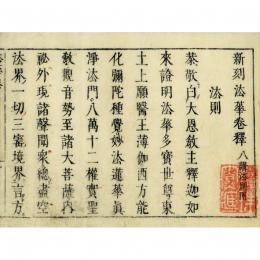 新刻法華卷釋 八講法則附
法則
恭敬白大恩教主釋迦如
來證明法華多寶世尊東
土上願醫王薄伽西方能
化彌陀種覺妙法蓮華眞
淨法門八萬十二權實聖
教觀音勢至諸大菩薩內
秘外現諸聲聞衆總盡空
法界一切三寳境界言方